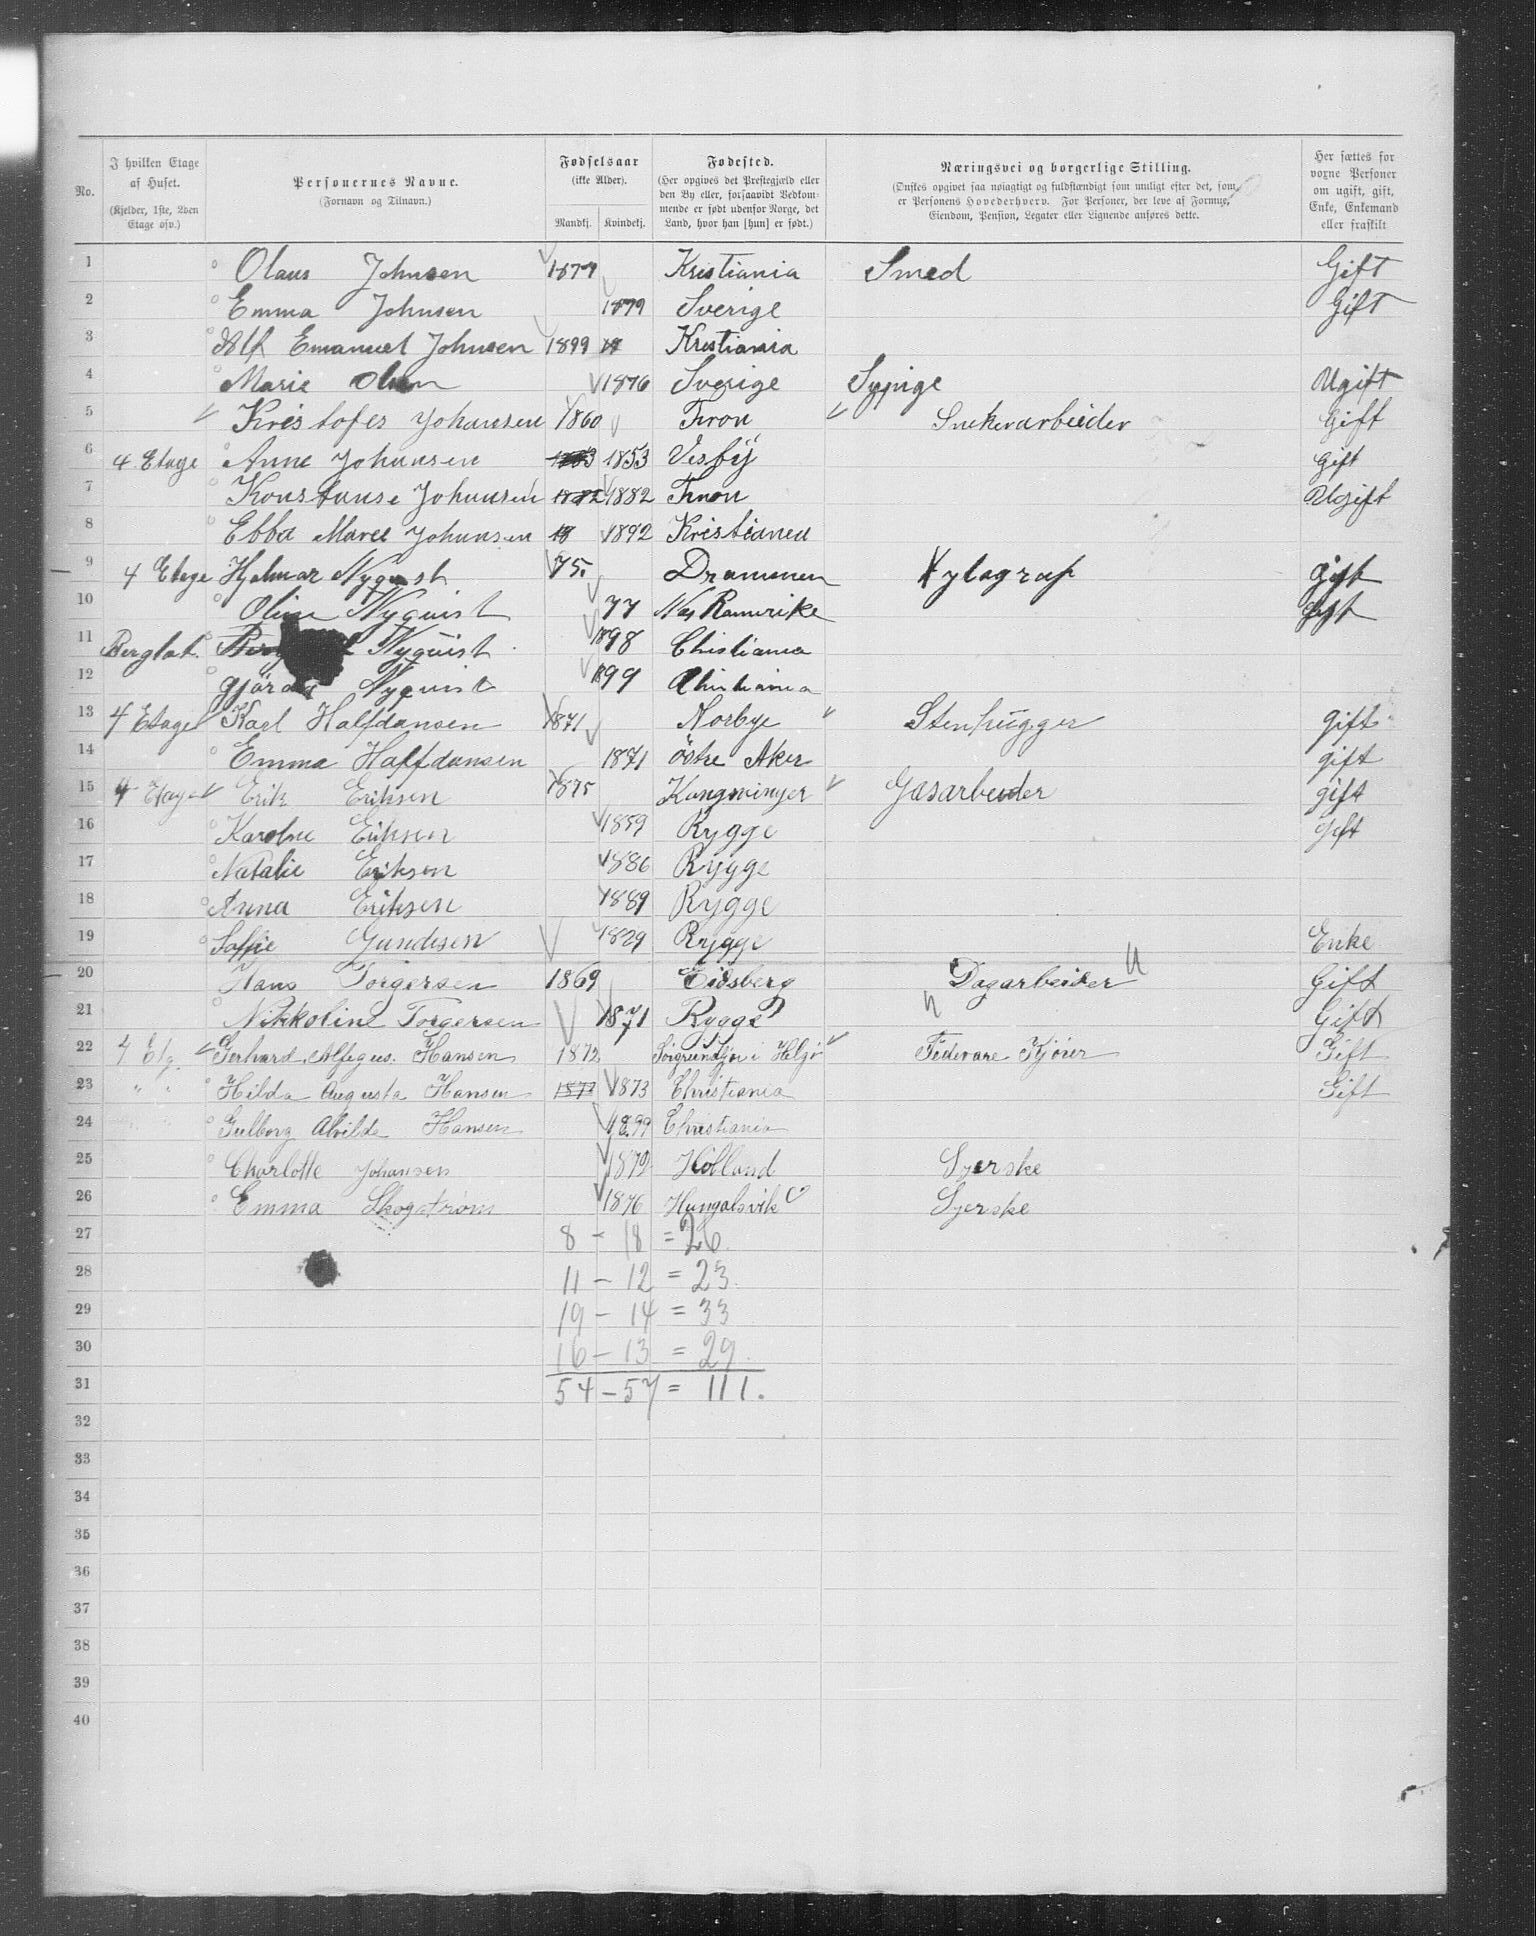 No. | I hvilken Etage af Huset. (Kjelder, 1ste, 2den Etage osv.) | Personernes Navne. (Fornavn og Tilnavn.) | Fødselsaar (ikke Alder). Mandkj. Kvindekj. | Fødested. (Her opgives det Prestegjæld eller den By eller, forsaavidt Vedkommende er født udenfor Norge, det Land, hvor han [hun] er født.) | Næringsvei og borgerlige Stilling. (Ønskes opgivet saa nøiagtigt og fuldstændigt som muligt efter det, som er Personens Hovederhverv. For Personer, der leve af Formue, Eiendom, Pension, Legater eller Lignende anføres dette.) | Her sættes for voxne Personer om ugift, gift, Enke, Enkemand eller fraskilt
1 Olaus Johnsen 1877 Kristiania Smed Gift
2 Emma Johnsen 1879 Sverige Gift
3 Alf Emanuel Johnsen 1899 Kristiania
4 Marie Olsen 1876 Sverige Sypige Ugift
5 Kristofer Johansen 1860 Tron Snekerarbeider Gift
6 4 Etage Anne Johansen 1853 Visby gift
7 Konstanse Johansen 1882 Tron Ugift
8 Ebba Maree Johansen 18 1892 Kristiania
9 4 Etage Hjalmar Nyquist 75. Drammen Xylograf gift
10 Oline Nyquist 77 Nes Romerike gift
11 Berglot. Nyquist 1898 Christiania
12 Nyquist 1899 Christiania
13 4 Etage Karl Halfdansen 1871 Norbye Stenhugger gift
14 Emma Halfdansen 1871 Østre Aker gift
15 4 Etage Erik Eriksen 1875 Kongsvinger Gasarbeider gift
16 Karoline Eriksen 1859 Rygge gift
17 Natalie Eriksen 1886 Rygge
18 Anna Eriksen 1889 Rygge
19 Soffie Gundesen 1829 Rygge Enke
20 Hans Torgersen 1869 Eidsberg Dagarbeider Gift
21 Nikkoline Torgersen 1871 Rygge Gift
22 4 Etg. Gerhard Alfegus. Hansen 1872 Fedevare Kjører Gift
23 " " Hilda Augusta Hansen 1873 Christiania Gift
24 Gulborg Alvilde Hansen 1899 Christiania
25 Charlotte Johansen 1879 Holland Syerske
26 Emma Skogstrøm 1876 Syerske
27 8 - 18 = 26.
28 11 - 12 = 23.
29 19 - 14 = 33
30 16 - 13 = 29.
31 54 - 57 = 111.
32
33
34
35
36
37
38
39
40